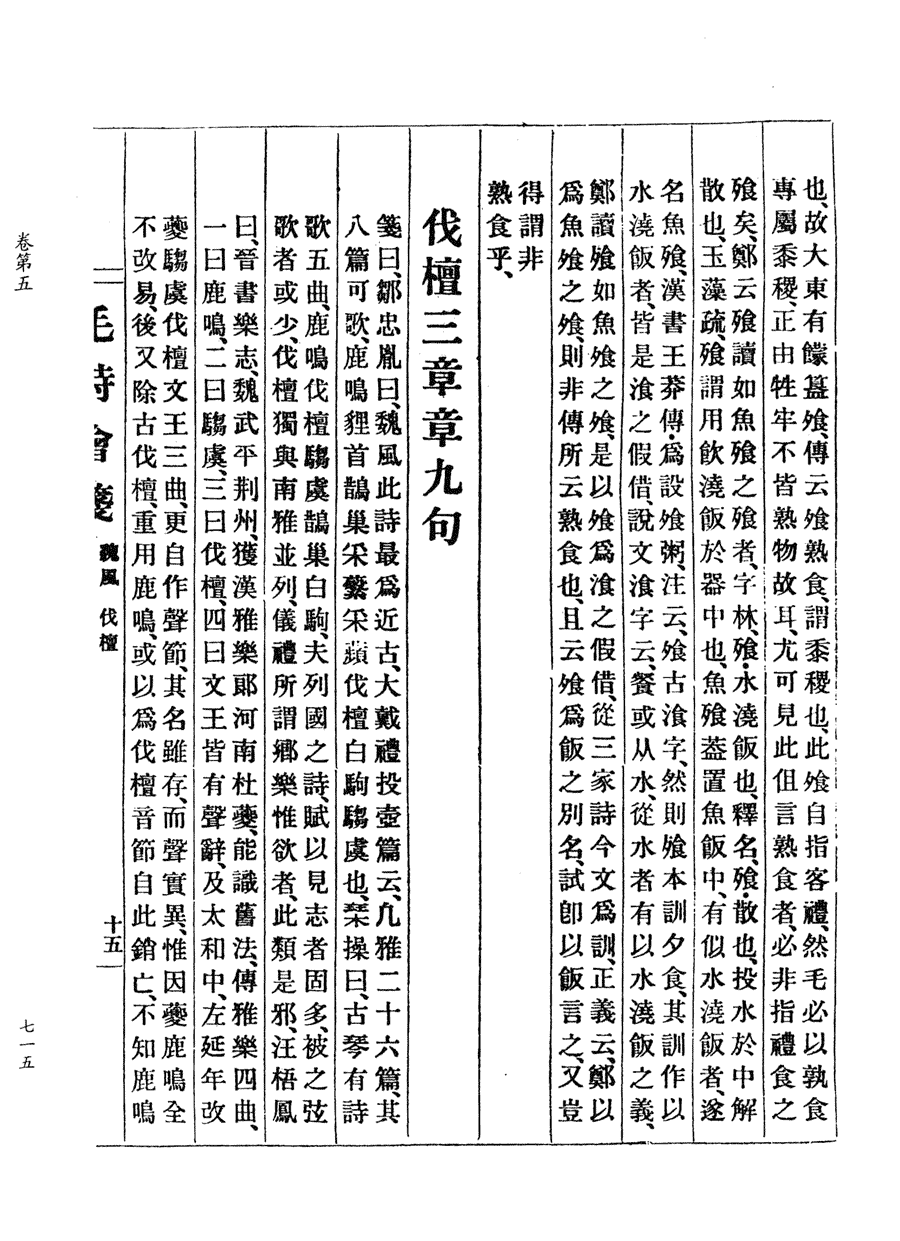 也、故大東有饛簋飧、傳云飧熟食、謂黍稷也、此飧自指客禮、然毛必以孰食
專屬黍稷、正由牲牢不皆熟物故耳、尤可見此但言熟食者、必非指禮食之
飧矣、鄭云飧讀如魚飧之飧者、字林、飧・水澆飯也、釋名、飧・散也、投水於中解
散也、玉藻疏、飧謂用飲澆飯於器中也、魚飧葢置魚飯中、有似水澆飯者、遂
名魚飧、漢書王莽傳・爲設飧粥、注云、飧古湌字、然則飧本訓夕食、其訓作以
水澆飯者、皆是湌之假借、說文湌字云、餐或从水、從水者有以水澆飯之義、
鄭讀飧如魚飧之飧、是以飧爲湌之假借、從三家詩今文爲訓、正義云、鄭以
爲魚飧之飧、則非傳所云熟食也、且云飧爲飯之別名、試卽以飯言之、又豈
得謂非
熟食乎、
伐檀三章章九句
箋曰、鄒忠胤曰、魏風此詩最爲近古、大戴禮投壺篇云、凡雅二十六篇、其
八篇可歌、鹿鳴貍首鵲巢采蘩采蘋伐檀白駒騶虞也、琹操曰、古琴有詩
歌五曲、鹿鳴伐檀騶虞鵲巢白駒、夫列國之詩、賦以見志者固多、被之弦
歌者或少、伐檀獨與南雅並列、儀禮所謂鄉樂惟欲者、此類是邪、汪梧鳳
曰、晉書樂志、魏武平荆州、獲漢雅樂郎河南杜夔、能識舊法、傳雅樂四曲、
一曰鹿鳴、二曰騶虞、三曰伐檀、四曰文王皆有聲辭、及太和中、左延年改
夔騶虞伐檀文王三曲、更自作聲節、其名雖存、而聲實異、惟因夔鹿鳴全
不改易、後又除古伐檀、重用鹿鳴、或以爲伐檀音節自此銷亡、不知鹿鳴
毛詩會箋 魏風 伐檀 十五
卷第五
七一五